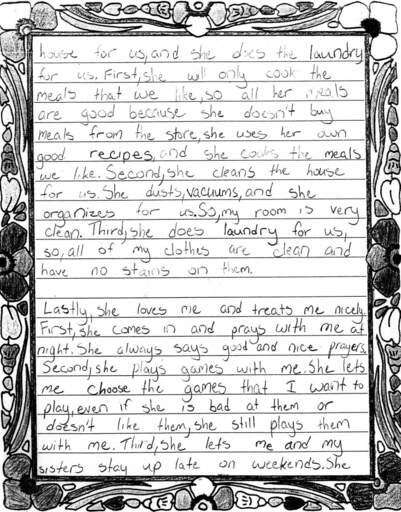 house for us, and she does the laundry
for us. First, she will only cook the
meals that we like, so all her meals
are good because she doesn't buy
meals from the store, she uses her own
good recipes, and she cooks the meals
we like. Second, she cleans the house
for us. She dusts, vacuums, and she
organizes for us. So, my room is very
clean. Third, she does laundry for us,
so, all of my clothes are clean and
have no stains on them.
Lastly, she loves me and treats me nicely.
First, she comes in and prays with me at
night. She always says good and nice prayers.
Second, she plays games with me. She lets
me choose the games that I want to
play, even if she is bad at them or
doesn't like them, she still plays them
with me. Third, she lets me and my
sisters stay up late on weekends. She